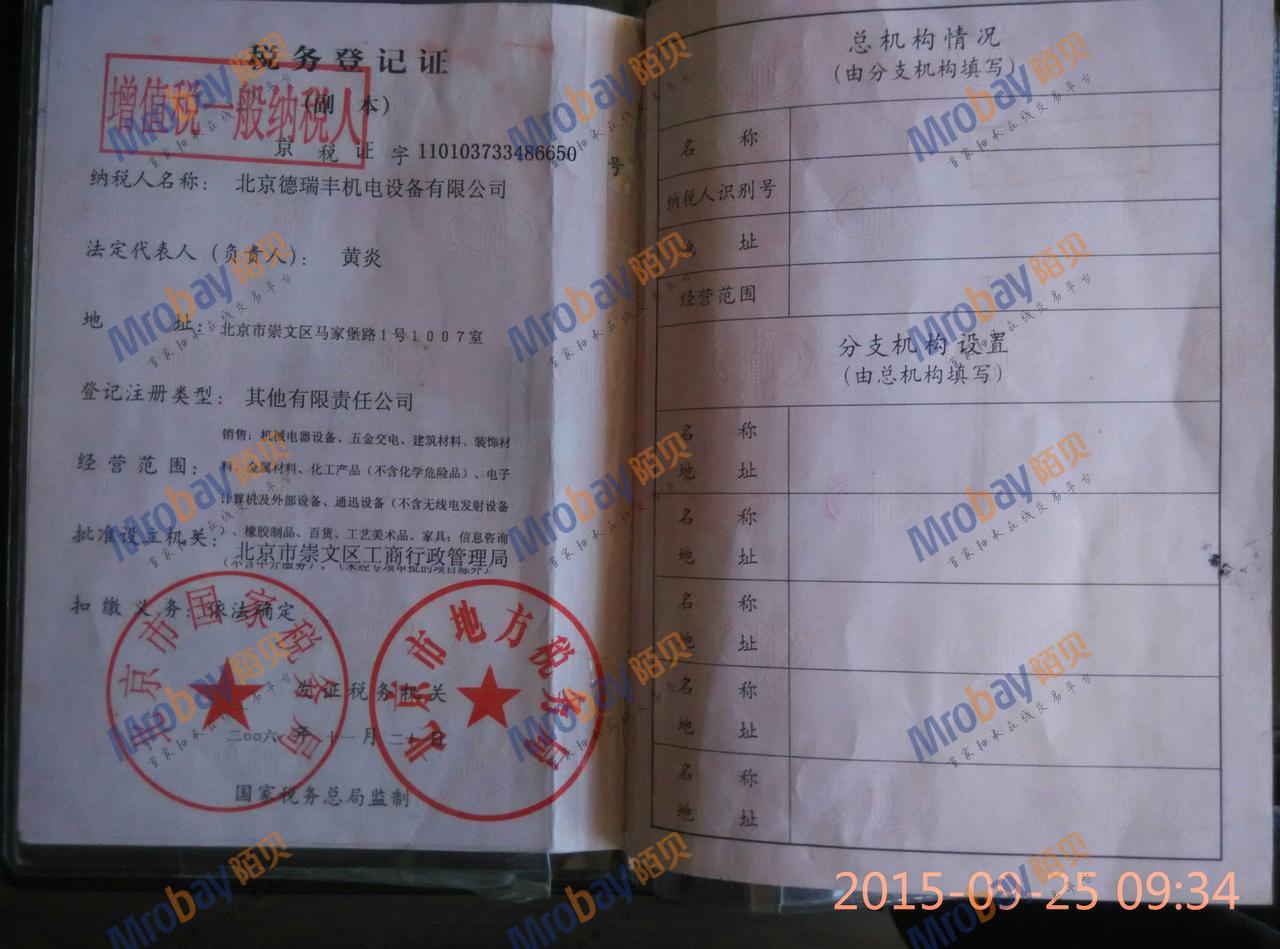 税务登记证
(副 本)
增值税一般纳税人
京 税 证 字 110103733486650 号
纳税人名称: 北京德瑞丰机电设备有限公司
法定代表人(负责人): 黄炎
地 址: 北京市崇文区马家堡路1号1007室
登记注册类型: 其他有限责任公司
经营范围: 销售:机械电器设备、五金交电、建筑材料、装饰材
料、金属材料、化工产品(不含化学危险品)、电子
计算机及外部设备、通迅设备(不含无线电发射设备
)、橡胶制品、百货、工艺美术品、家具;信息咨询
(不含中介服务)。(未经专项审批的项目除外)
批准设立机关: 北京市崇文区工商行政管理局
扣缴义务: 依法确定
北京市国家税务局
北京市地方税务局
发证税务机关
二〇〇六年十一月二十日
国家税务总局监制
总机构情况
(由分支机构填写)
名 称
纳税人识别号
地 址
经营范围
分支机构设置
(由总机构填写)
名 称
地 址
名 称
地 址
名 称
地 址
名 称
地 址
名 称
地 址
2015-09-25 09:34
Mrobay陌贝
首家轴承在线交易平台